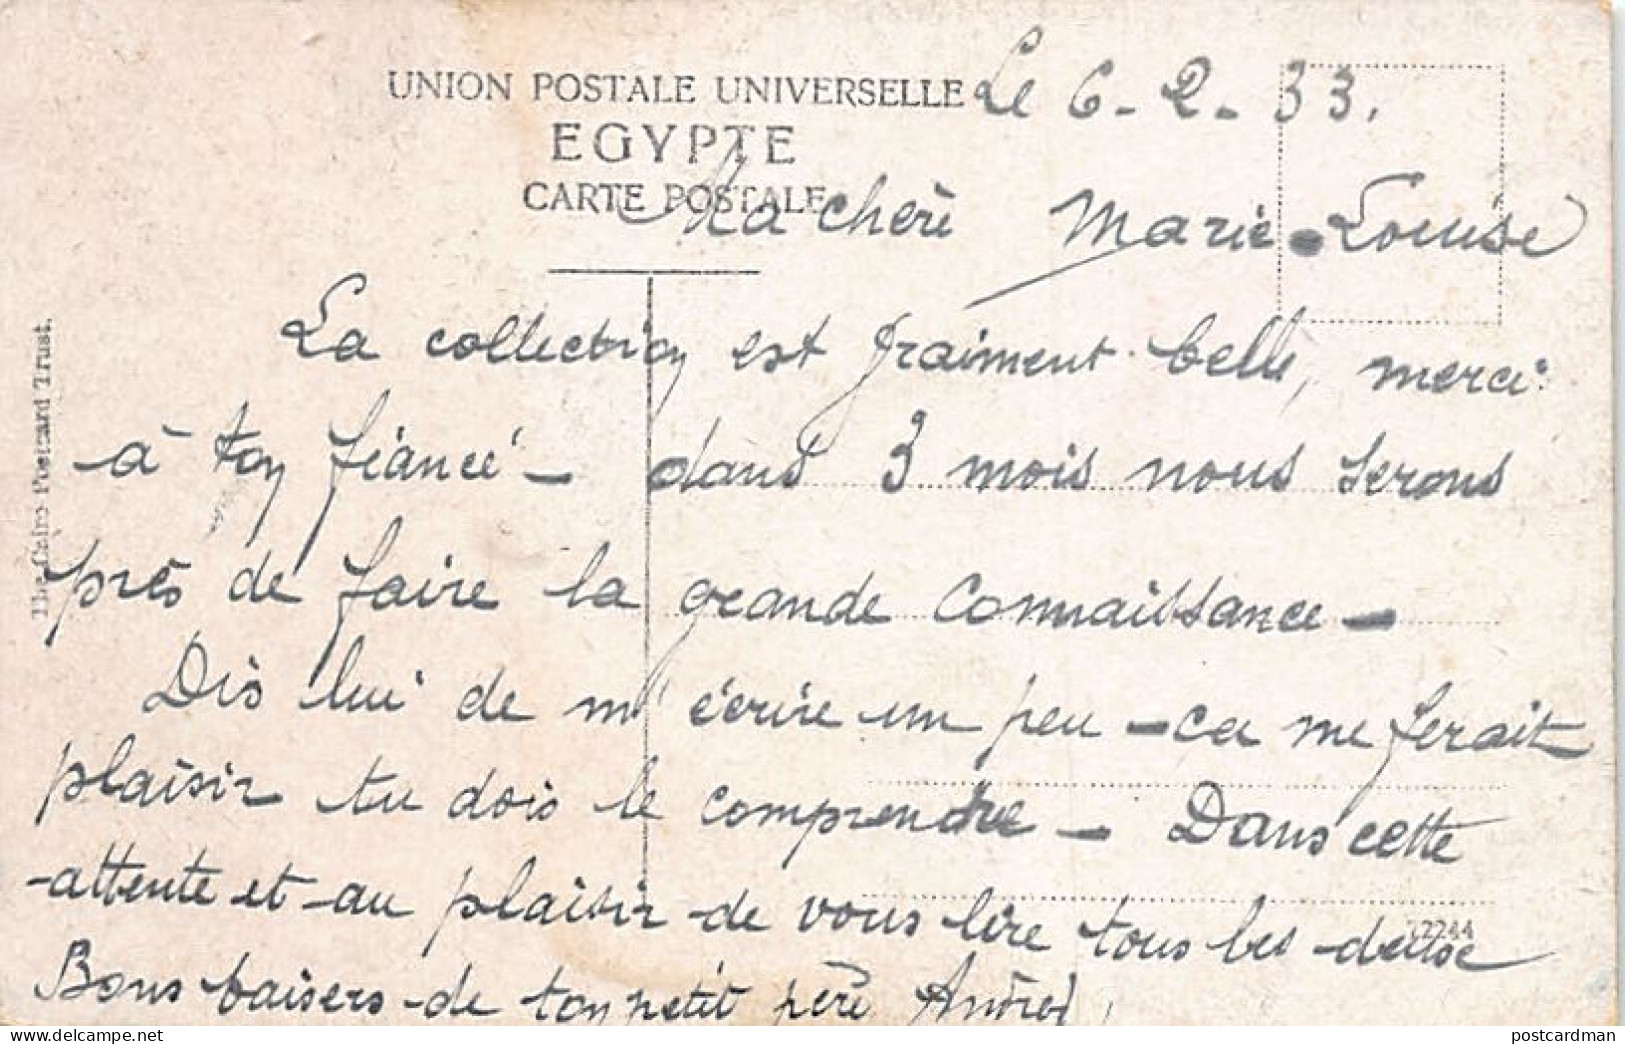 UNION POSTALE UNIVERSELLE
EGYPTE
CARTE POSTALE
Le 6-2-33.
Ma cherè Marie-Louise
La collection est fraiment belle, merci
à ton fiancé - dans 3 mois nous serons
près de faire la grande connaissance -
Dis lui de m'écrire un peu - ca me ferait
plaisir tu dois le comprendre - Dans cette
attente et au plaisir de vous lire tous les deux
Bons baisers de ton petit père André
The Cairo Postcard Trust.
72244
postcardman